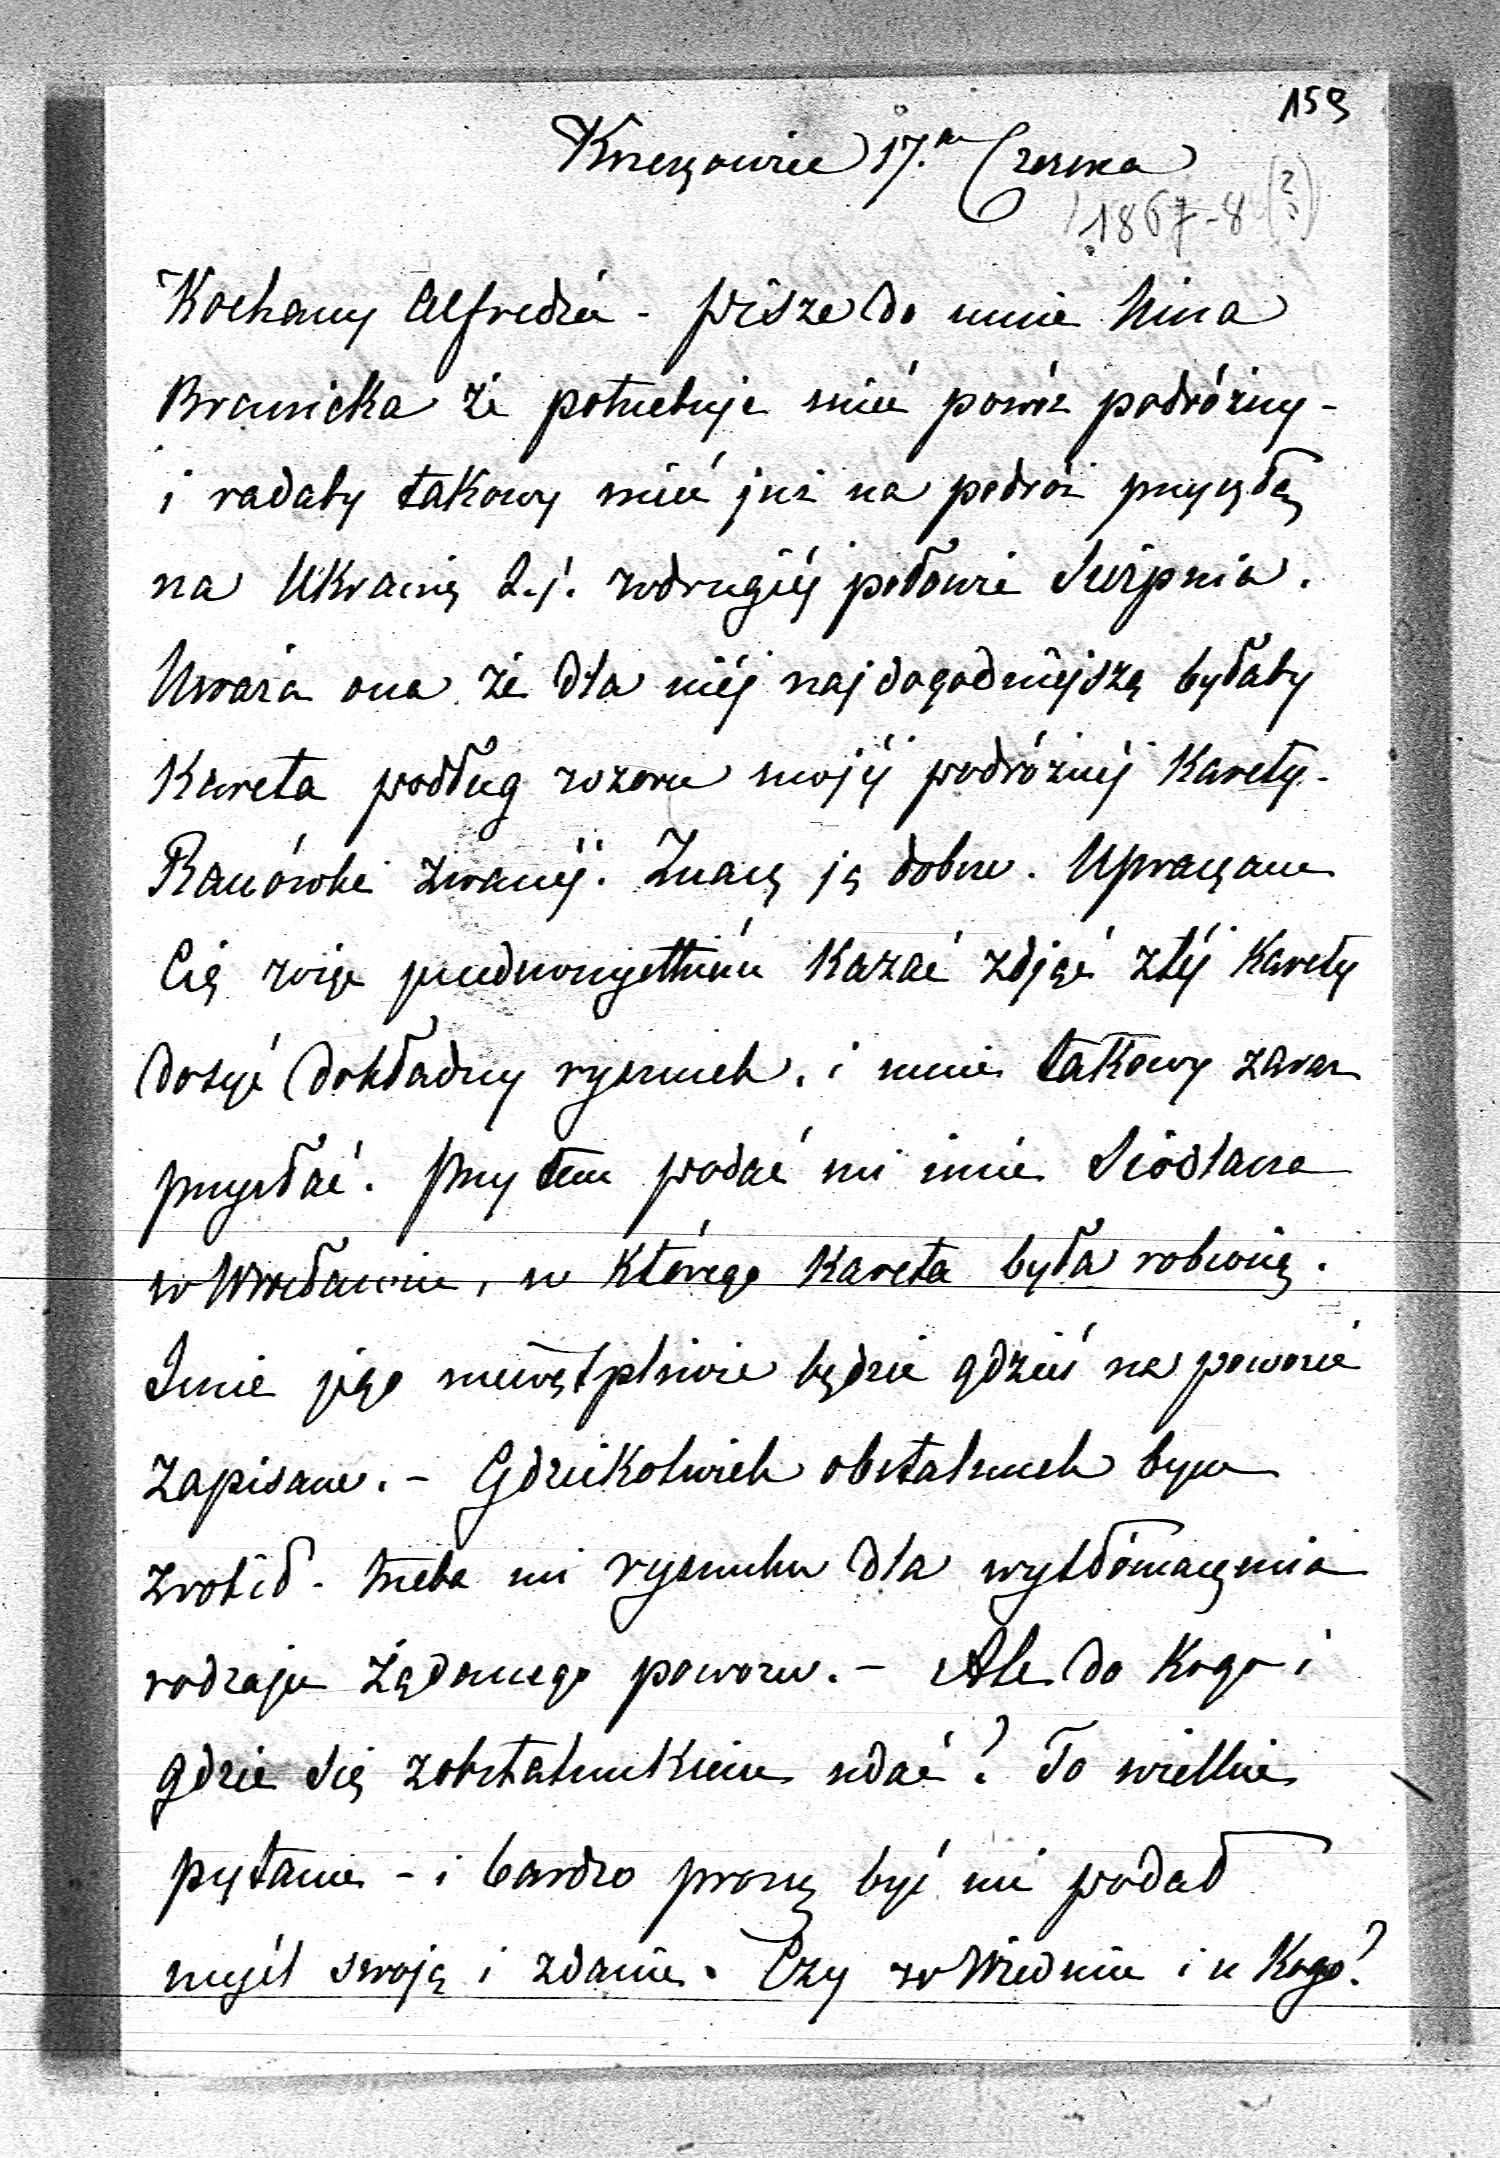 159
Krzeszowice 17.го Czerwca
1867-8 (?)
Kochany Alfredzie - pisze do mnie Nina
Branicka że potrzebuje mieć powóz podróżny -
i radaby takowy mieć już na podróż przyszłą
na Ukrainę t.j. w drugiéj połowie Sierpnia.
Uważa ona że dla niéj najdogodniejszą byłaby
Kareta podług wzoru mojéj podróżnéj Karety -
zwanéj. Znasz ją dobrze. Upraszam
Cię więc przedewszystkiém Kazać zdjąć z téj Karety
dosyć dokładny rysunek. i mnie takowy zaraz
przysłać. Przytem podać mi imie Siodlarza
w Wrocławiu, u Którego Kareta była robioną.
Imie jego niewątpliwie będzie gdzieś na powozie
zapisane. - Gdziekolwiek obstalunek bym
zrobił - trzeba mi rysunku dla wytłómaczenia
rodzaju żądanego powozu. - Ale do Kogo i
gdzie się z obstalunkiem udać? To wielkie
pytanie - i bardzo proszę byś mi podał
myśl swoją i zdanie. Czy w Wiedniu i u Kogo?